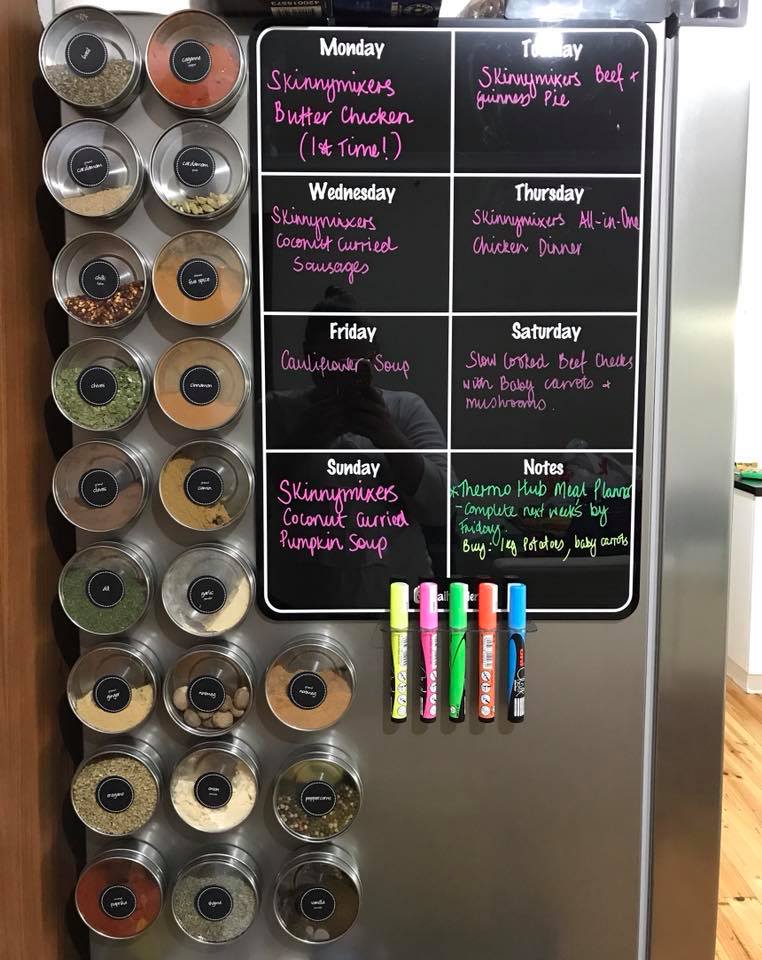 Monday
Skinnymixers
Butter Chicken
(1st Time!)
Skinnymixers Beef +
Guinness Pie
Wednesday
Skinnymixers
Coconut Curried
Sausages
Thursday
Skinnymixers All-in-One
Chicken Dinner
Friday
Cauliflower Soup
Saturday
Slow Cooked Beef Cheeks
with Baby carrots +
mushrooms.
Sunday
Skinnymixers
Coconut Curried
Pumpkin Soup
Notes
*Thermo Hub Meal Planner
- Complete next weeks by
Friday.
Buy: 1kg Potatoes, baby carrots
cayenne
ground
cardamom
cardamom
chilli
five spice
chives
cinnamon
cloves
cumin
dill
garlic
ground
ginger
nutmeg
nutmeg
oregano
onion
peppercorns
paprika
thyme
vanilla